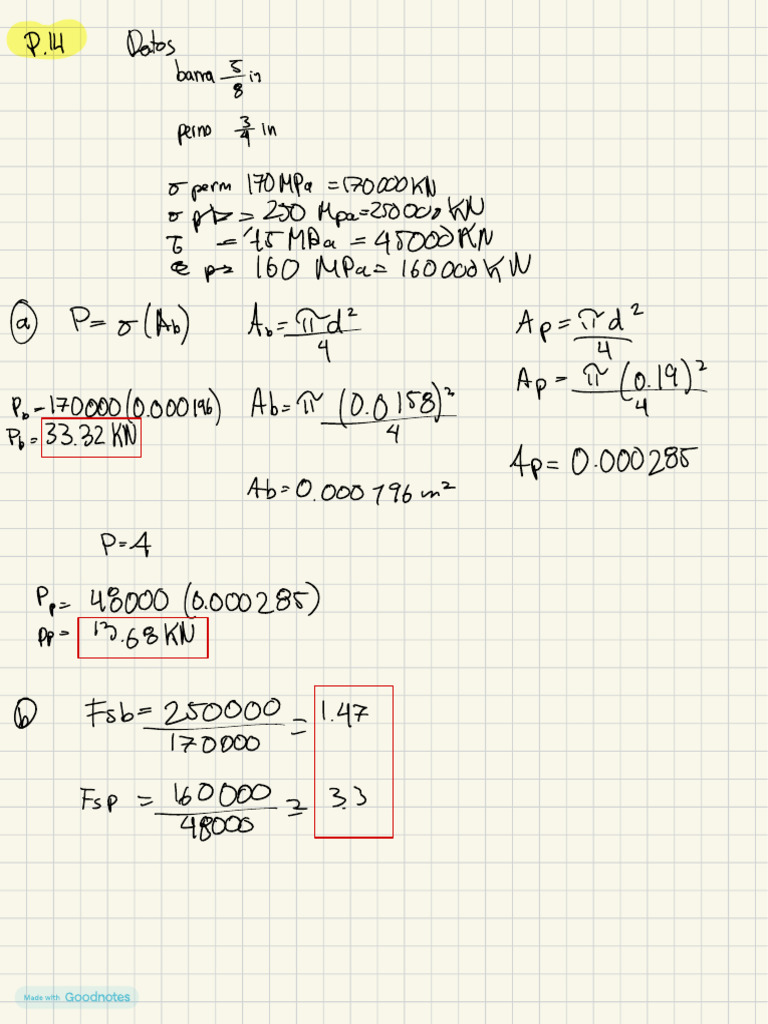 P.14 Datos
barra 5/8 in
perno 3/4 in
σ perm 170 MPa = 170000 KN
= 250 Mpa = 250000 KN
= 45 MPa = 45000 KN
160 MPa = 160000 KN
ⓐ P = σ(Ab) Ab = πd²/4 Ap = πd²/4
Pb - 170000(0.000196) Ab = π(0.0158)²/4 Ap = π(0.19)²/4
Pb = 33.32 KN
Ab = 0.000196 m² Ap = 0.000285
P = 4
Pp = 48000 (0.000285)
Pp = 13.68 KN
ⓑ Fsb = 250000/170000 = 1.47
Fsp = 160000/48000 = 3.3
Made with Goodnotes